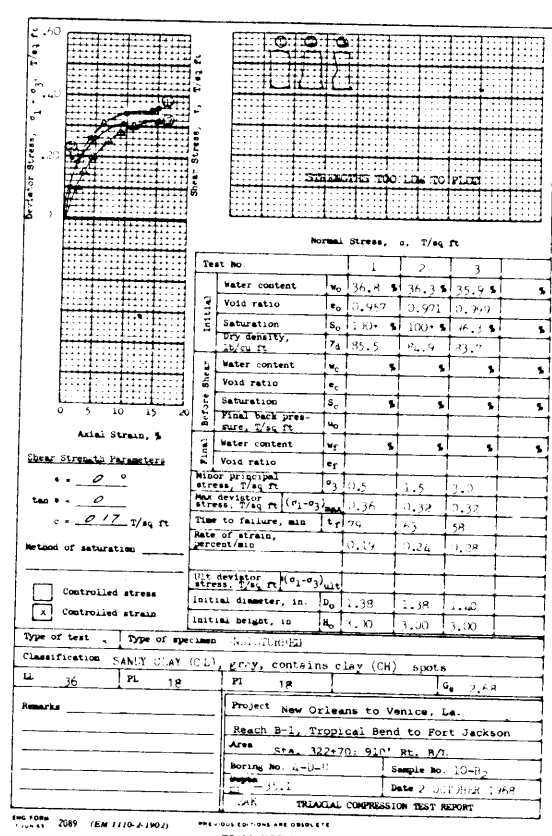 .60
.40
.20
0
Deviator Stress, σ1 - σ3, T/sq ft
Shear Stress, τ, T/sq ft
STRENGTHS TOO LOW TO PLOT
Normal Stress, σ, T/sq ft
0 5 10 15 20
Axial Strain, %
Shear Strength Parameters
φ = 0 °
tan φ = 0
c = 0.17 T/sq ft
Method of saturation
Controlled stress
x Controlled strain
Test No. 1 2 3
Initial
Water content w₀ 36.8 % 36.3 % 35.9 % %
Void ratio e₀ 0.971
Saturation S₀ 100+ % 100+ % 96.3 % %
Dry density, lb/cu ft γd 85.5 84.9
Before Shear
Water content wc % % % %
Void ratio ec
Saturation Sc % % % %
Final back pressure, T/sq ft u₀
Final
Water content wf % % % %
Void ratio ef
Minor principal stress, T/sq ft σ3 0.5 1.5 3.0
Max deviator stress, T/sq ft (σ1-σ3)max 0.36 0.32 0.32
Time to failure, min tf 63 58
Rate of strain, percent/min 0.19 0.24 0.28
Ult deviator stress, T/sq ft (σ1-σ3)ult
Initial diameter, in. D₀ 1.38 1.38 1.40
Initial height, in H₀ 3.00 3.00 3.00
Type of test Type of specimen UNDISTURBED
Classification SANDY CLAY (CL), gray, contains clay (CH) spots
LL 36 PL 18 PI 18 Gs 2.68
Remarks
Project New Orleans to Venice, La.
Reach B-1, Tropical Bend to Fort Jackson
Area Sta. 322+70; 910' Rt. B/L
Boring No. 4-D-U Sample No. 10-B2
-35.1 Date 2 OCTOBER 1968
TRIAXIAL COMPRESSION TEST REPORT
ENG FORM 2089 (EM 1110-2-1902) PREVIOUS EDITIONS ARE OBSOLETE